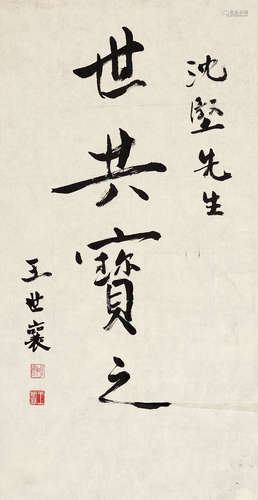 沈坚先生
世共寶之
王世襄